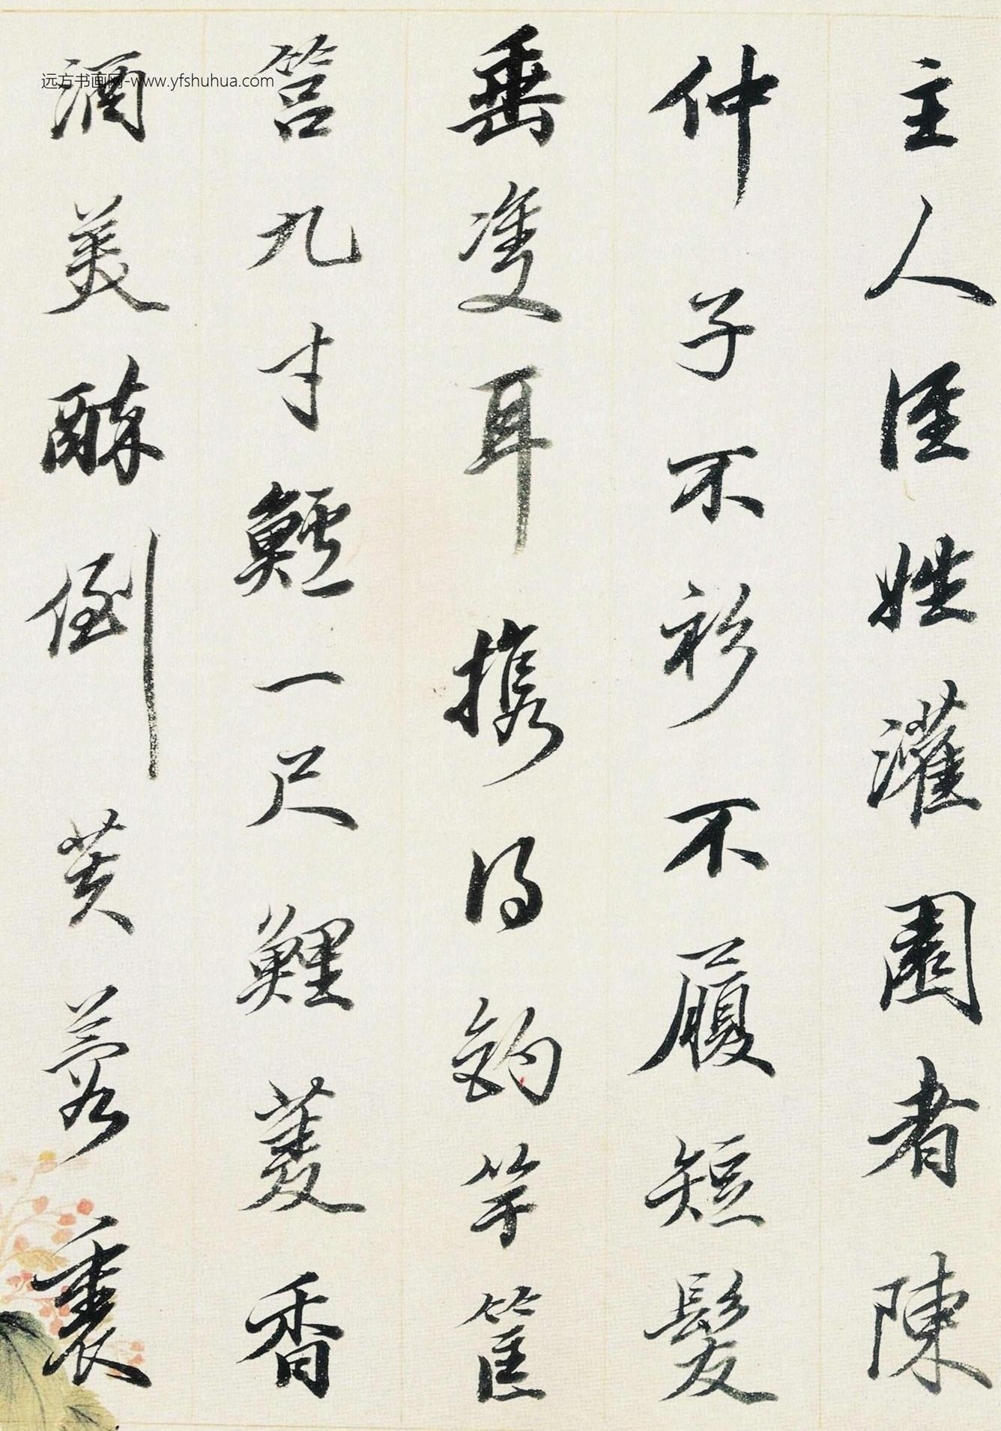 主人何姓灌園者陳
仲子不衫不履短髮
垂雙耳攜得釣竿筐
筥九寸鱸一尺鯉菱香
酒美醉倒芙蓉裏
远方书画网-www.yfshuhua.com